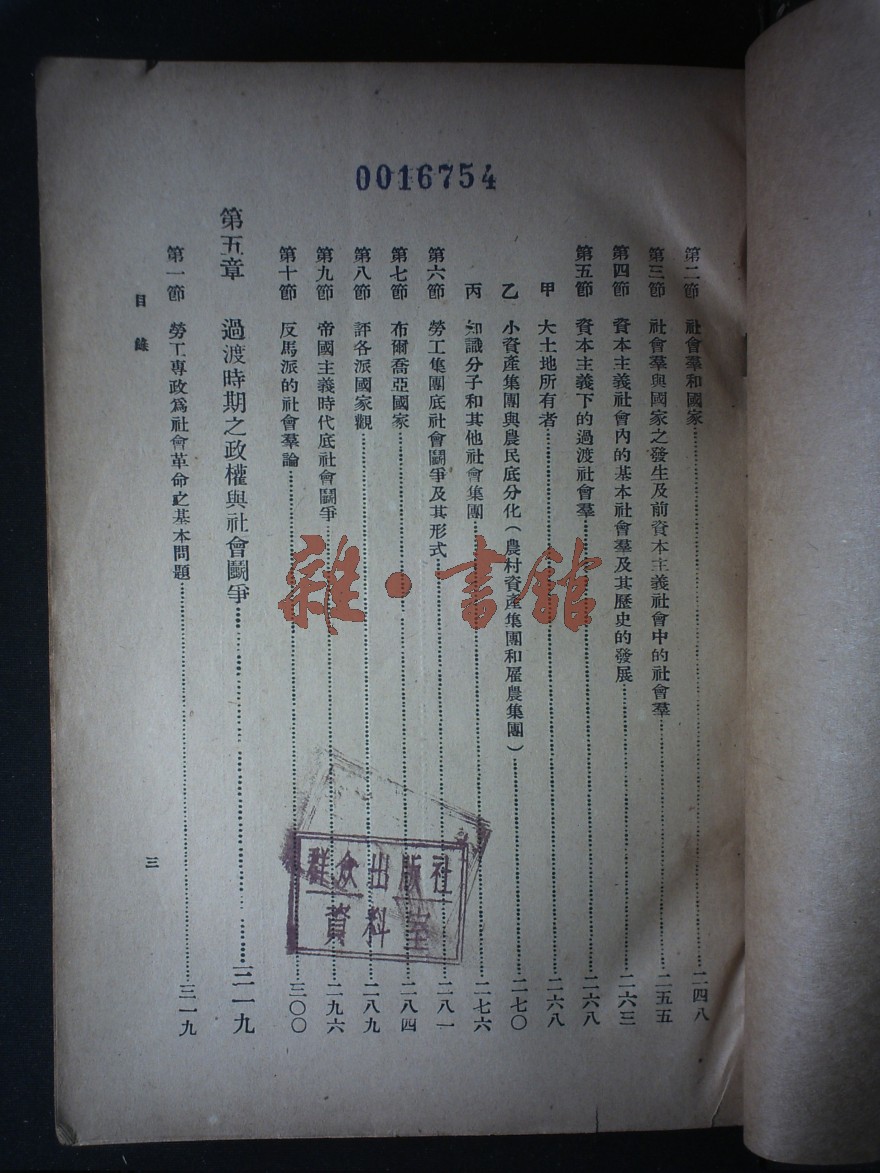 0016754
第二節 社會羣和國家 二四八
第三節 社會羣與國家之發生及前資本主義社會中的社會羣 二五五
第四節 資本主義社會內的基本社會羣及其歷史的發展 二六三
第五節 資本主義下的過渡社會羣 二六八
甲 大土地所有者 二六八
乙 小資產集團與農民底分化(農村資產集團和雇農集團) 二七〇
丙 知識分子和其他社會集團 二七六
第六節 勞工集團底社會鬭爭及其形式 二八一
第七節 布爾喬亞國家 二八四
第八節 評各派國家觀 二八九
第九節 帝國主義時代底社會鬭爭 二九六
第十節 反馬派的社會羣論 三〇〇
第五章 過渡時期之政權與社會鬭爭 三一九
第一節 勞工專政爲社會革命之基本問題 三一九
目錄
三
雜·書舘
群众出版社
資料室